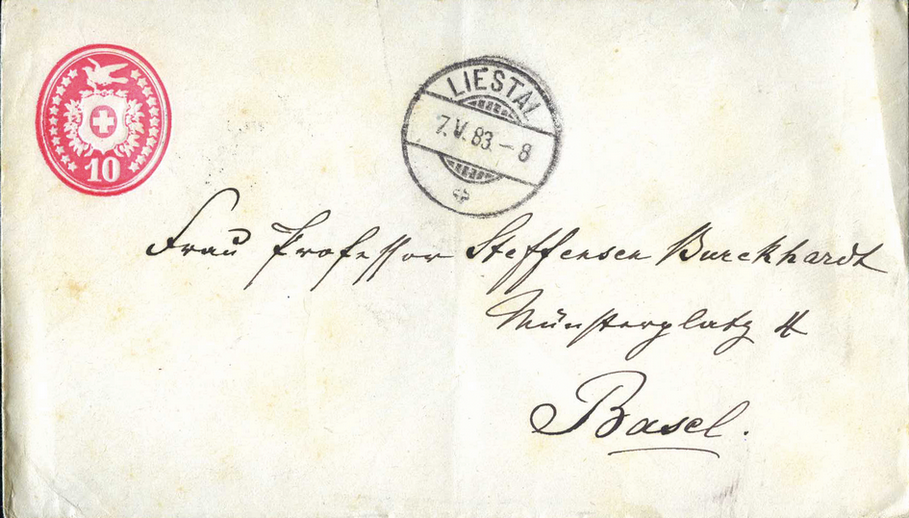 10
LIESTAL
7.V.83.–8
Frau Professor Steffensen Burckhardt
Münsterplatz 4
Basel.